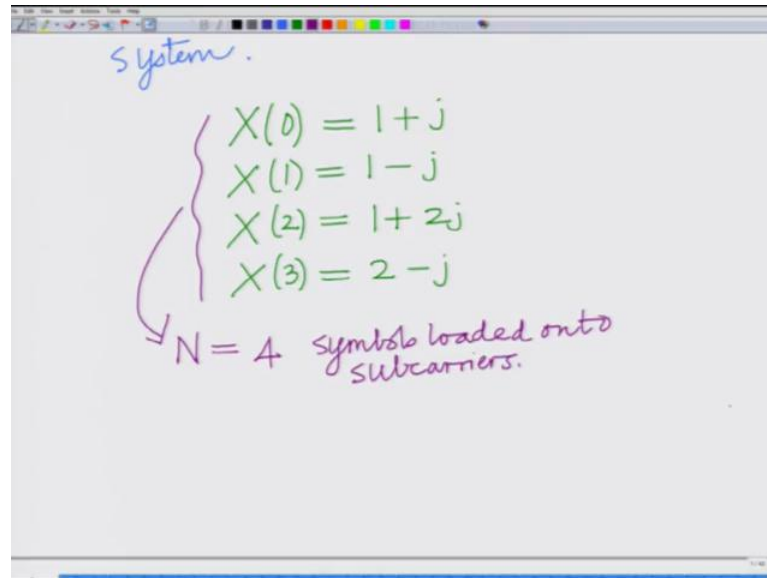 system.
X(0) = 1 + j
X(1) = 1 - j
X(2) = 1 + 2j
X(3) = 2 - j
N = 4 symbols loaded onto
subcarriers.